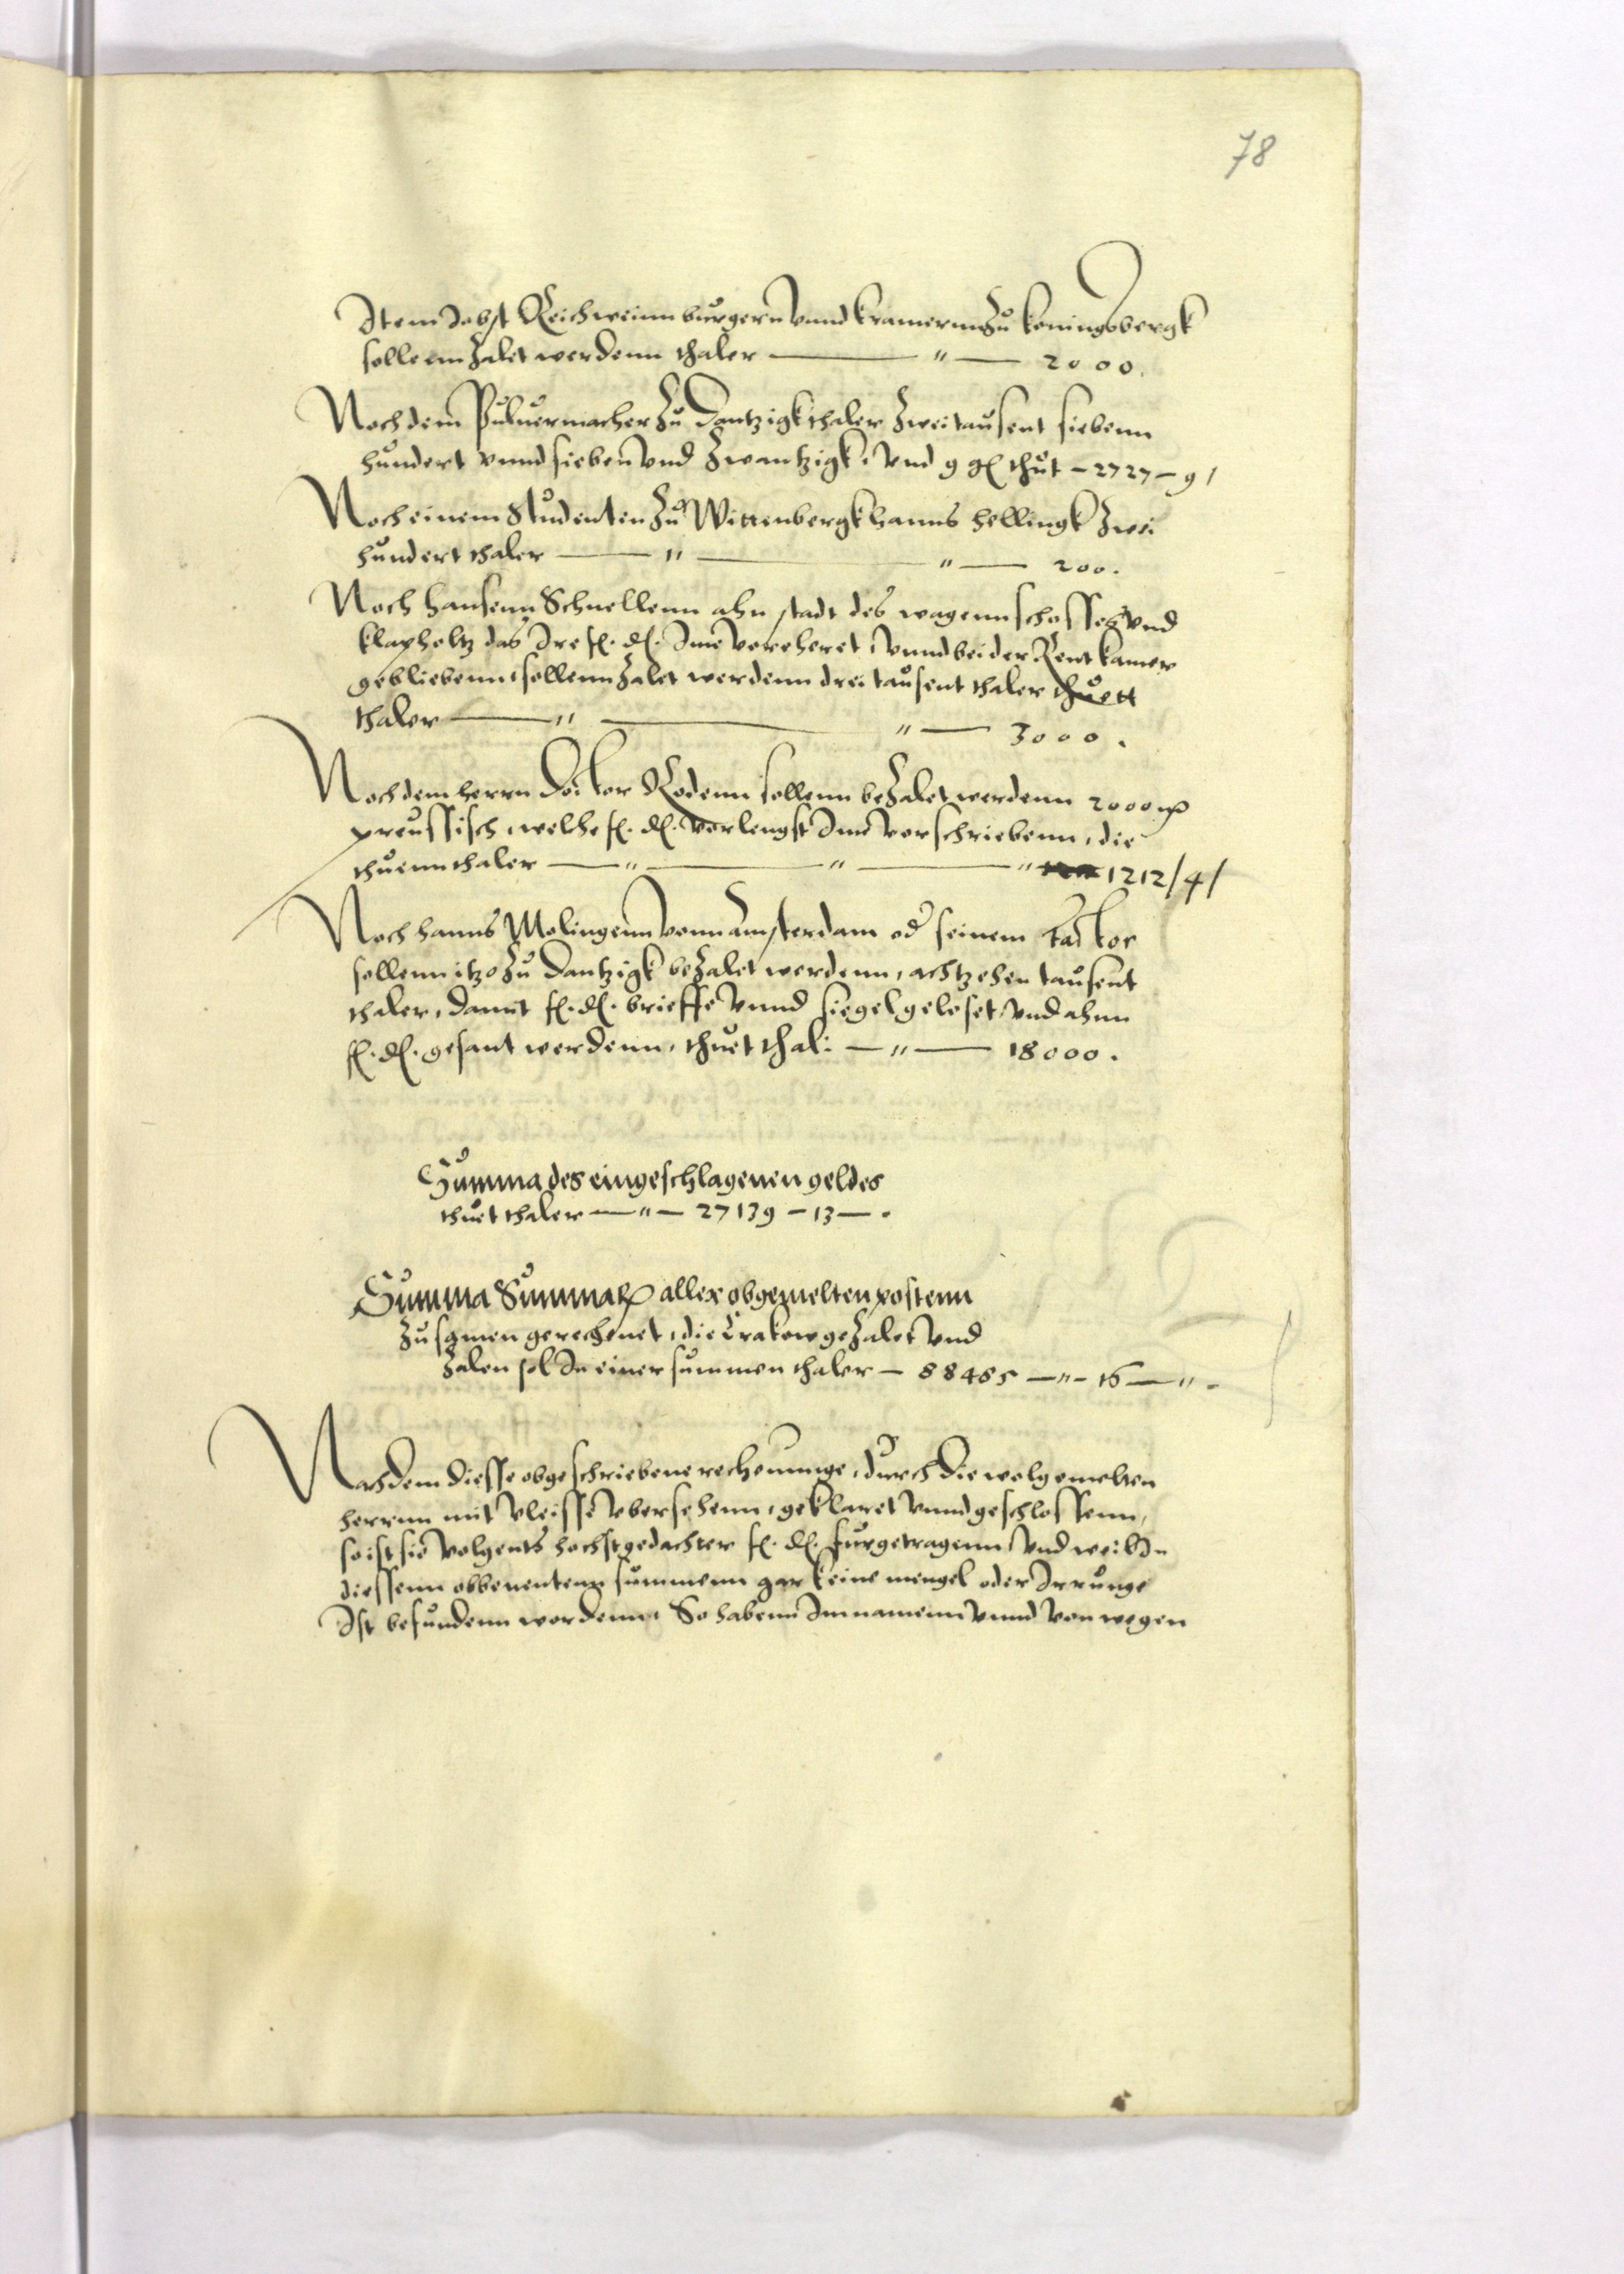 78
Item Jobst Reichweinn burgern vnnd kramernn zu koningsbergk
sollenn zalet werdenn thaler — " — 2000.
Noch dem Puluermacher zu Dantzigk thaler zweitausent siebenn
hundert vnnd sieben vnd zwantzigk, vnd 9 gl thut – 2727 – 9 /
Noch einem Studenten zu Wittenbergk hanns hellingk zwei
hundert thaler — " — " — 200.
Noch hansenn Schnellenn ahn stadt des wagennschosses vnd
klapholtz das Ire f. d. Ime vorehret, vnnd bei der Rentkamer
gebliebenn, sollenn zalet werdenn drei tausent thaler thuett
thaler — " — " — 3000.
Noch dem herrn Doctor Rodenn sollenn bezalet werdenn 2000 m
preussisch, welche f. d. vorlengst Ime vorschriebenn, die
thuenn thaler — " — " — " 1212/4/
Noch hanns Molingenn vonn amsterdam od seinem factor
sollenn itzo zu Dantzigk bezalet werdenn, achtzehen tausent
thaler, damit f. d. brieffe vnnd siegel geloset, vnd ahnn
f. d. gesant werdenn, thuet thal: — " — 18000.
Summa des eingeschlagenen geldes
thuet thaler — " — 27139 – 13 — .
Summa Summar aller obgemelten postenn
zusamen gerechenet, die Crakow gezalet vnd
zalen sol In einer summen thaler – 88485 — " – 16 — " .
Nachdem diesse obgeschriebene rechenunge, durch die wolgemelten
herrnn mit vleisse vbersehenn, geklaret vnnd geschlossenn,
so ist sie volgents hochstgedachter f. d. furgetragenn, vnd weil In
diessenn obbenentenn summenn gar keine mengel oder Irrunge
Ist befundenn wordenn, So habenn Im namenn vnnd von wegen